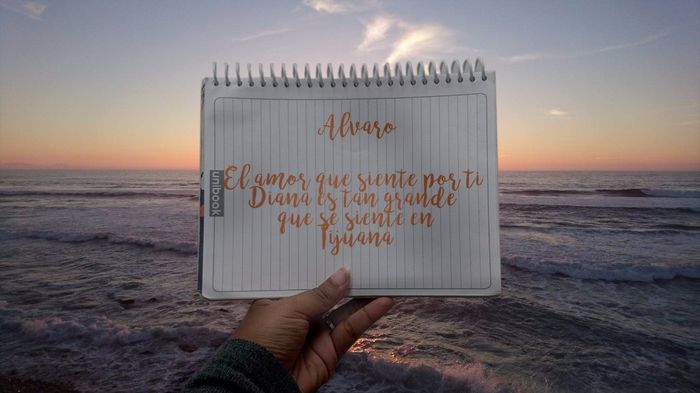 Alvaro
El amor que siente por ti
Diana es tan grande
que se siente en
Tijuana
unibook